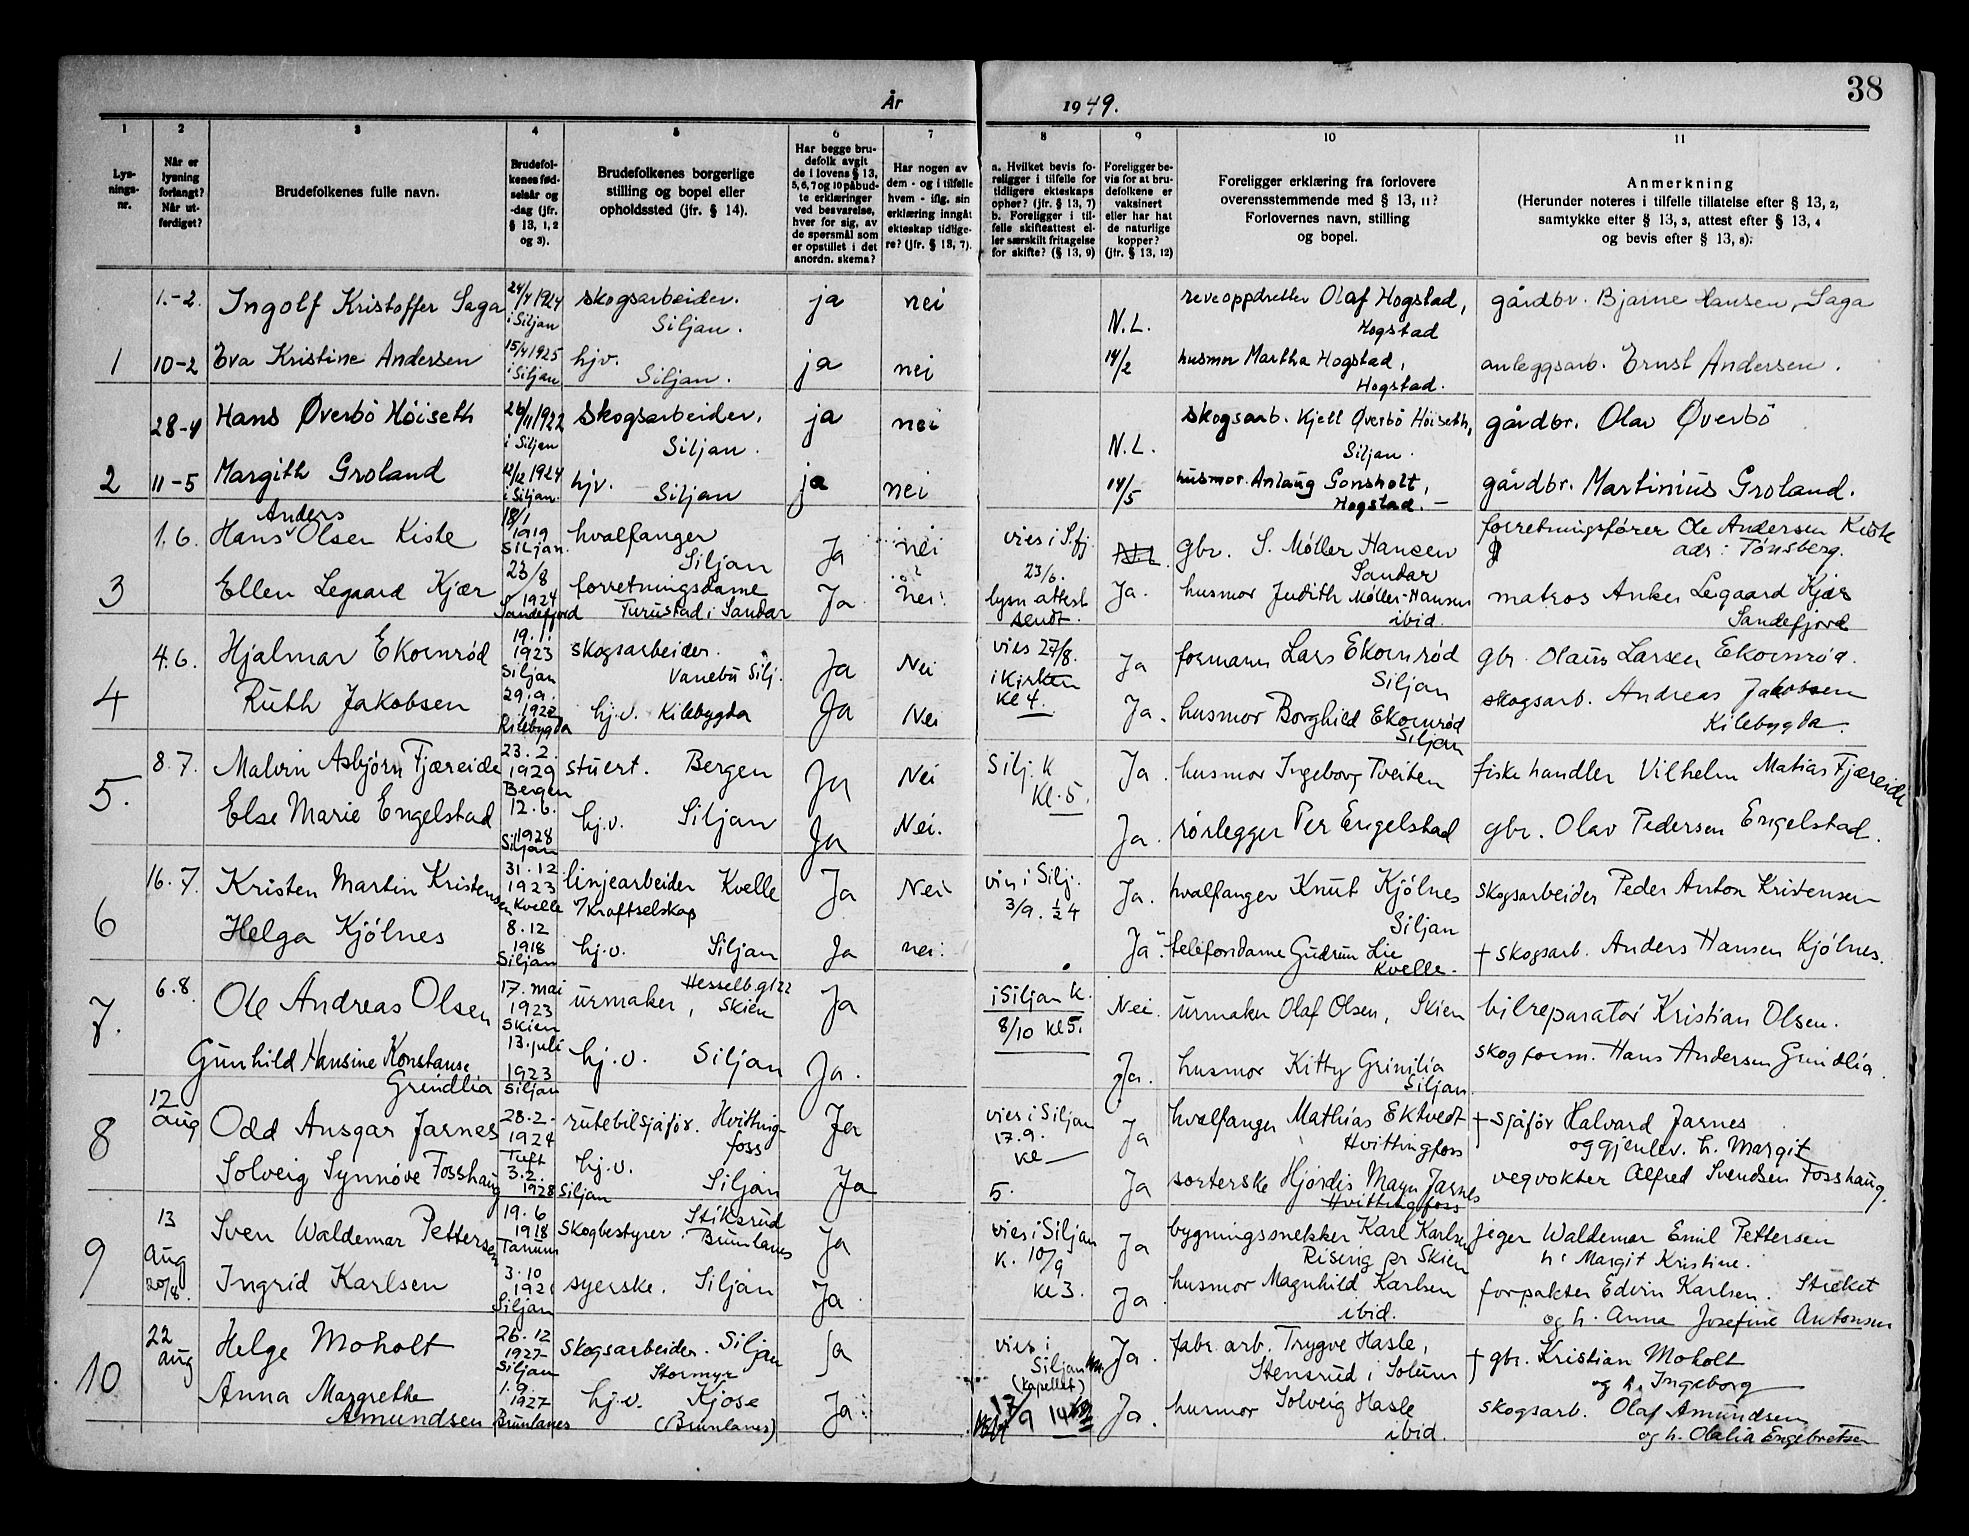 38
År 1949.
1
Lysnings-nr.
2
Når er lysning forlangt? Når utferdiget?
3
Brudefolkenes fulle navn.
4
Brudefolkenes fødselsår og -dag (jfr. § 13, 1, 2 og 3).
5
Brudefolkenes borgerlige stilling og bopel eller opholdssted (jfr. § 14).
6
Har begge brudefolk avgit de i lovens § 13, 5, 6, 7 og 10 påbudte erklæringer ved besvarelse, hver for sig, av de spørsmål som er opstillet i det anordn. skema?
7
Har nogen av dem - og i tilfelle hvem - iflg. sin erklæring inngått ekteskap tidligere? (Jfr. § 13, 7).
8
a. Hvilket bevis foreligger i tilfelle for tidligere ekteskaps ophør? (jfr. § 13, 7)
b. Foreligger i tilfelle skifteattest eller særskilt fritagelse for skifte? (§ 13, 9)
9
Foreligger bevis for at brudefolkene er vaksinert eller har hat de naturlige kopper? (jfr. § 13, 12)
10
Foreligger erklæring fra forlovere overensstemmende med § 13, 11? Forlovernes navn, stilling og bopel.
11
Anmerkning
(Herunder noteres i tilfelle tillatelse efter § 13, 2, samtykke efter § 13, 3, attest efter § 13, 4 og bevis efter § 13, 8).
1.-2. Ingolf Kristoffer Saga 24/4 1924 i Siljan skogsarbeider. Siljan. ja nei N.L. reveoppdretter Olaf Hogstad, Hogstad gårdbr. Bjarne Hansen, Saga
1 10-2 Eva Kristine Andersen 15/4 1925 i Siljan hjv. Siljan. ja nei 14/2 husmor Martha Hogstad, Hogstad. anleggsarb. Ernst Andersen.
28-4 Hans Øverbö Höiseth 26/11 1922 i Siljan skogsarbeider. Siljan. ja nei N.L. skogsarb. Kjell Øverbö Höiseth, Siljan. gårdbr. Olav Øverbö
2 11-5 Margith Groland 12/12 1924 i Siljan. hjv. Siljan ja nei 14/5 husmor Anlaug Gonsholt, Hogstad. - gårdbr. Martinius Groland.
1.6. Hans Anders Olsen Kiste 18/1 1919 Siljan. hvalfanger Siljan Ja nei vies i S.fj 23/6. gbr. S. Møller Hansen Sandar forretningsfører Ole Andersen Kiste adr: Tønsberg.
3 Ellen Legaard Kjær 23/8 1924 Sandefjord forretningsdame Turustad i Sandar Ja nei. lysn attest sendt. Ja. husmor Judith Møller-Hansen ibid. matros Anker Legaard Kjær Sandefjord
4.6. Hjalmar Ekornrød 19.1. 1923 Siljan skogsarbeider. Vanebu Silj. Ja Nei vies 27/8. i Kirken Kl 4. Ja formann Lars Ekornrød Siljan gbr. Olaus Larsen Ekornrød.
4 Ruth Jakobsen 29.9. 1922 Kilebygda hj.v. Kilebygda Ja Nei Ja. husmor Borghild Ekornrød Siljan skogsarb. Andreas Jakobsen Kilebygda.
8.7. Malvin Asbjørn Fjæreide 23.2. 1929 Bergen stuert. Bergen Ja Nei Silj. K Kl. 5. Ja. husmor Ingeborg Tveiten fiskehandler Vilhelm Matias Fjæreide
5. Else Marie Engelstad 12.6. 1928 Siljan hj.v. Siljan Ja Nei. Ja. rørlegger Per Engelstad gbr. Olav Pedersen Engelstad.
16.7. Kristen Martin Kristensen 31.12 1923 Kvelle linjearbeider Kvelle v/Kraftselskap Ja Nei vies i Silj. 3/9. ½ 4 Ja. hvalfanger Knut Kjölnes Siljan skogsarbeider Peder Anton Kristensen
6 Helga Kjölnes 8.12 1918 Siljan hj.v. Siljan Ja nei. Ja. telefondame Gudrun Lie Kvelle. † skogsarb. Anders Hansen Kjölnes.
6.8. Ole Andreas Olsen 17. mai 1923 Skien urmaker, Hesselb.gt 22 Skien Ja i Siljan K. 8/10 kl 5. Nei. urmaker Olaf Olsen, Skien bilreparatör Kristian Olsen.
7. Gunhild Hansine Konstanse Grindlia 13. juli 1923 Siljan hj.v. Siljan Ja. Ja. husmor Kitty Grinilia Siljan skogform. Hans Andersen Grindlia.
12 aug Odd Ansgar Jarnes 28.2- 1924 Tuft rutebilsjåför. Hvittingfoss Ja vies i Siljan 17.9. kl 5. Ja hvalfanger Mathias Ektvedt Hvittingfoss † sjåför Halvard Jarnes og gjenlev. h. Margit
8 Solveig Synnöve Fosshaug 3.2. 1928 Siljan hj.v. Siljan Ja Ja sorterske Hjördis Mayn Jarnes Hvittingfoss vegvokter Alfred Svendsen Fosshaug.
13 aug Sven Waldemar Pettersen 19.6 1918 Tanum skogbestyrer. Stiksrud Brunlanes Ja vies i Siljan K. 10/9 kl 3. Ja bygningssnekker Karl Karlsen Rising pr Skien jeger Waldemar Emil Pettersen h. Margit Kristine.
9 20/8. Ingrid Karlsen 3.10 1921 Siljan syerske. Siljan Ja Ja. husmor Magnhild Karlsen ibid. forpakter Edvin Karlsen. og h. Anna Josefine Antonsen
22 aug Helge Moholt 26.12 1927 Siljan skogsarbeider. Siljan Stormyr Ja vies i Siljan (kapellet) Ja. fabr. arb. Trygve Hasle, Stensrud i Solum † gbr. Kristian Moholt og h. Ingeborg
10 Anna Margrethe Amundsen 1.9. 1927 Brunlanes hj.v. Kjose (Brunlanes) Ja. 17/9 Ja. husmor Solveig Hasle ibid. skogsarb. Olaf Amundsen og h. Olalia Engebretsen